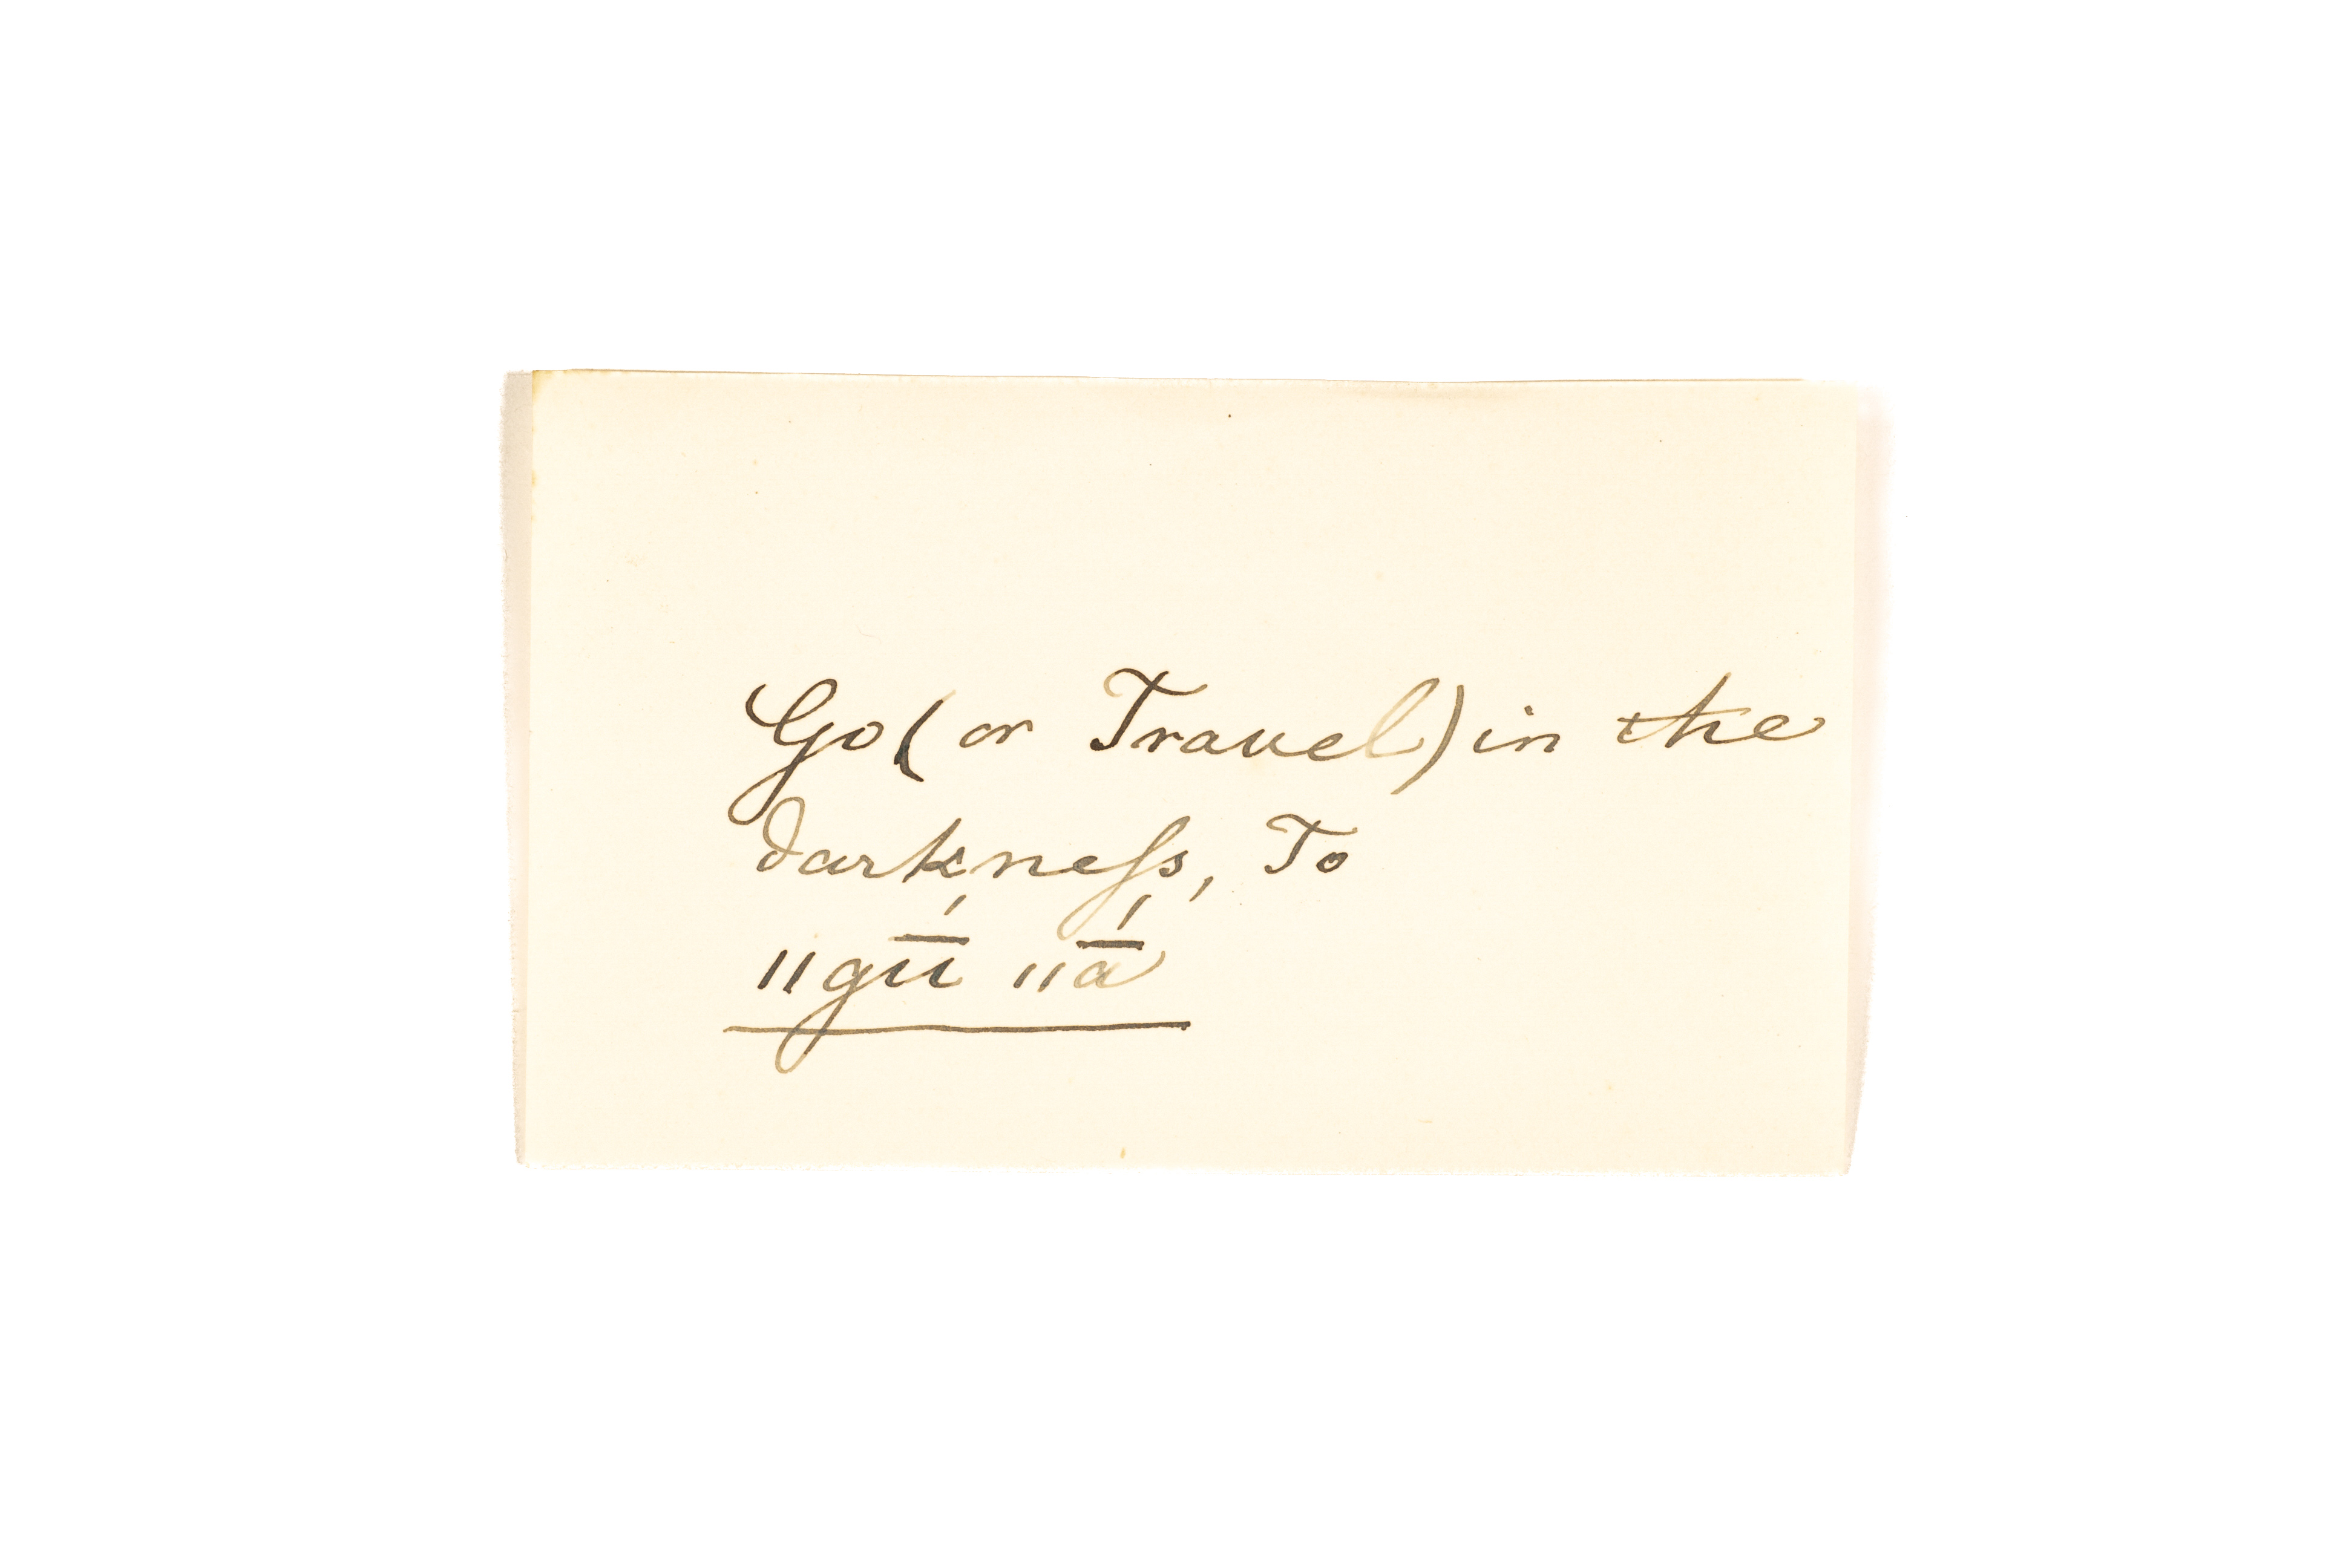 Go (or Travel) in the
darkneſs, To
ǁgū́ ǁā́